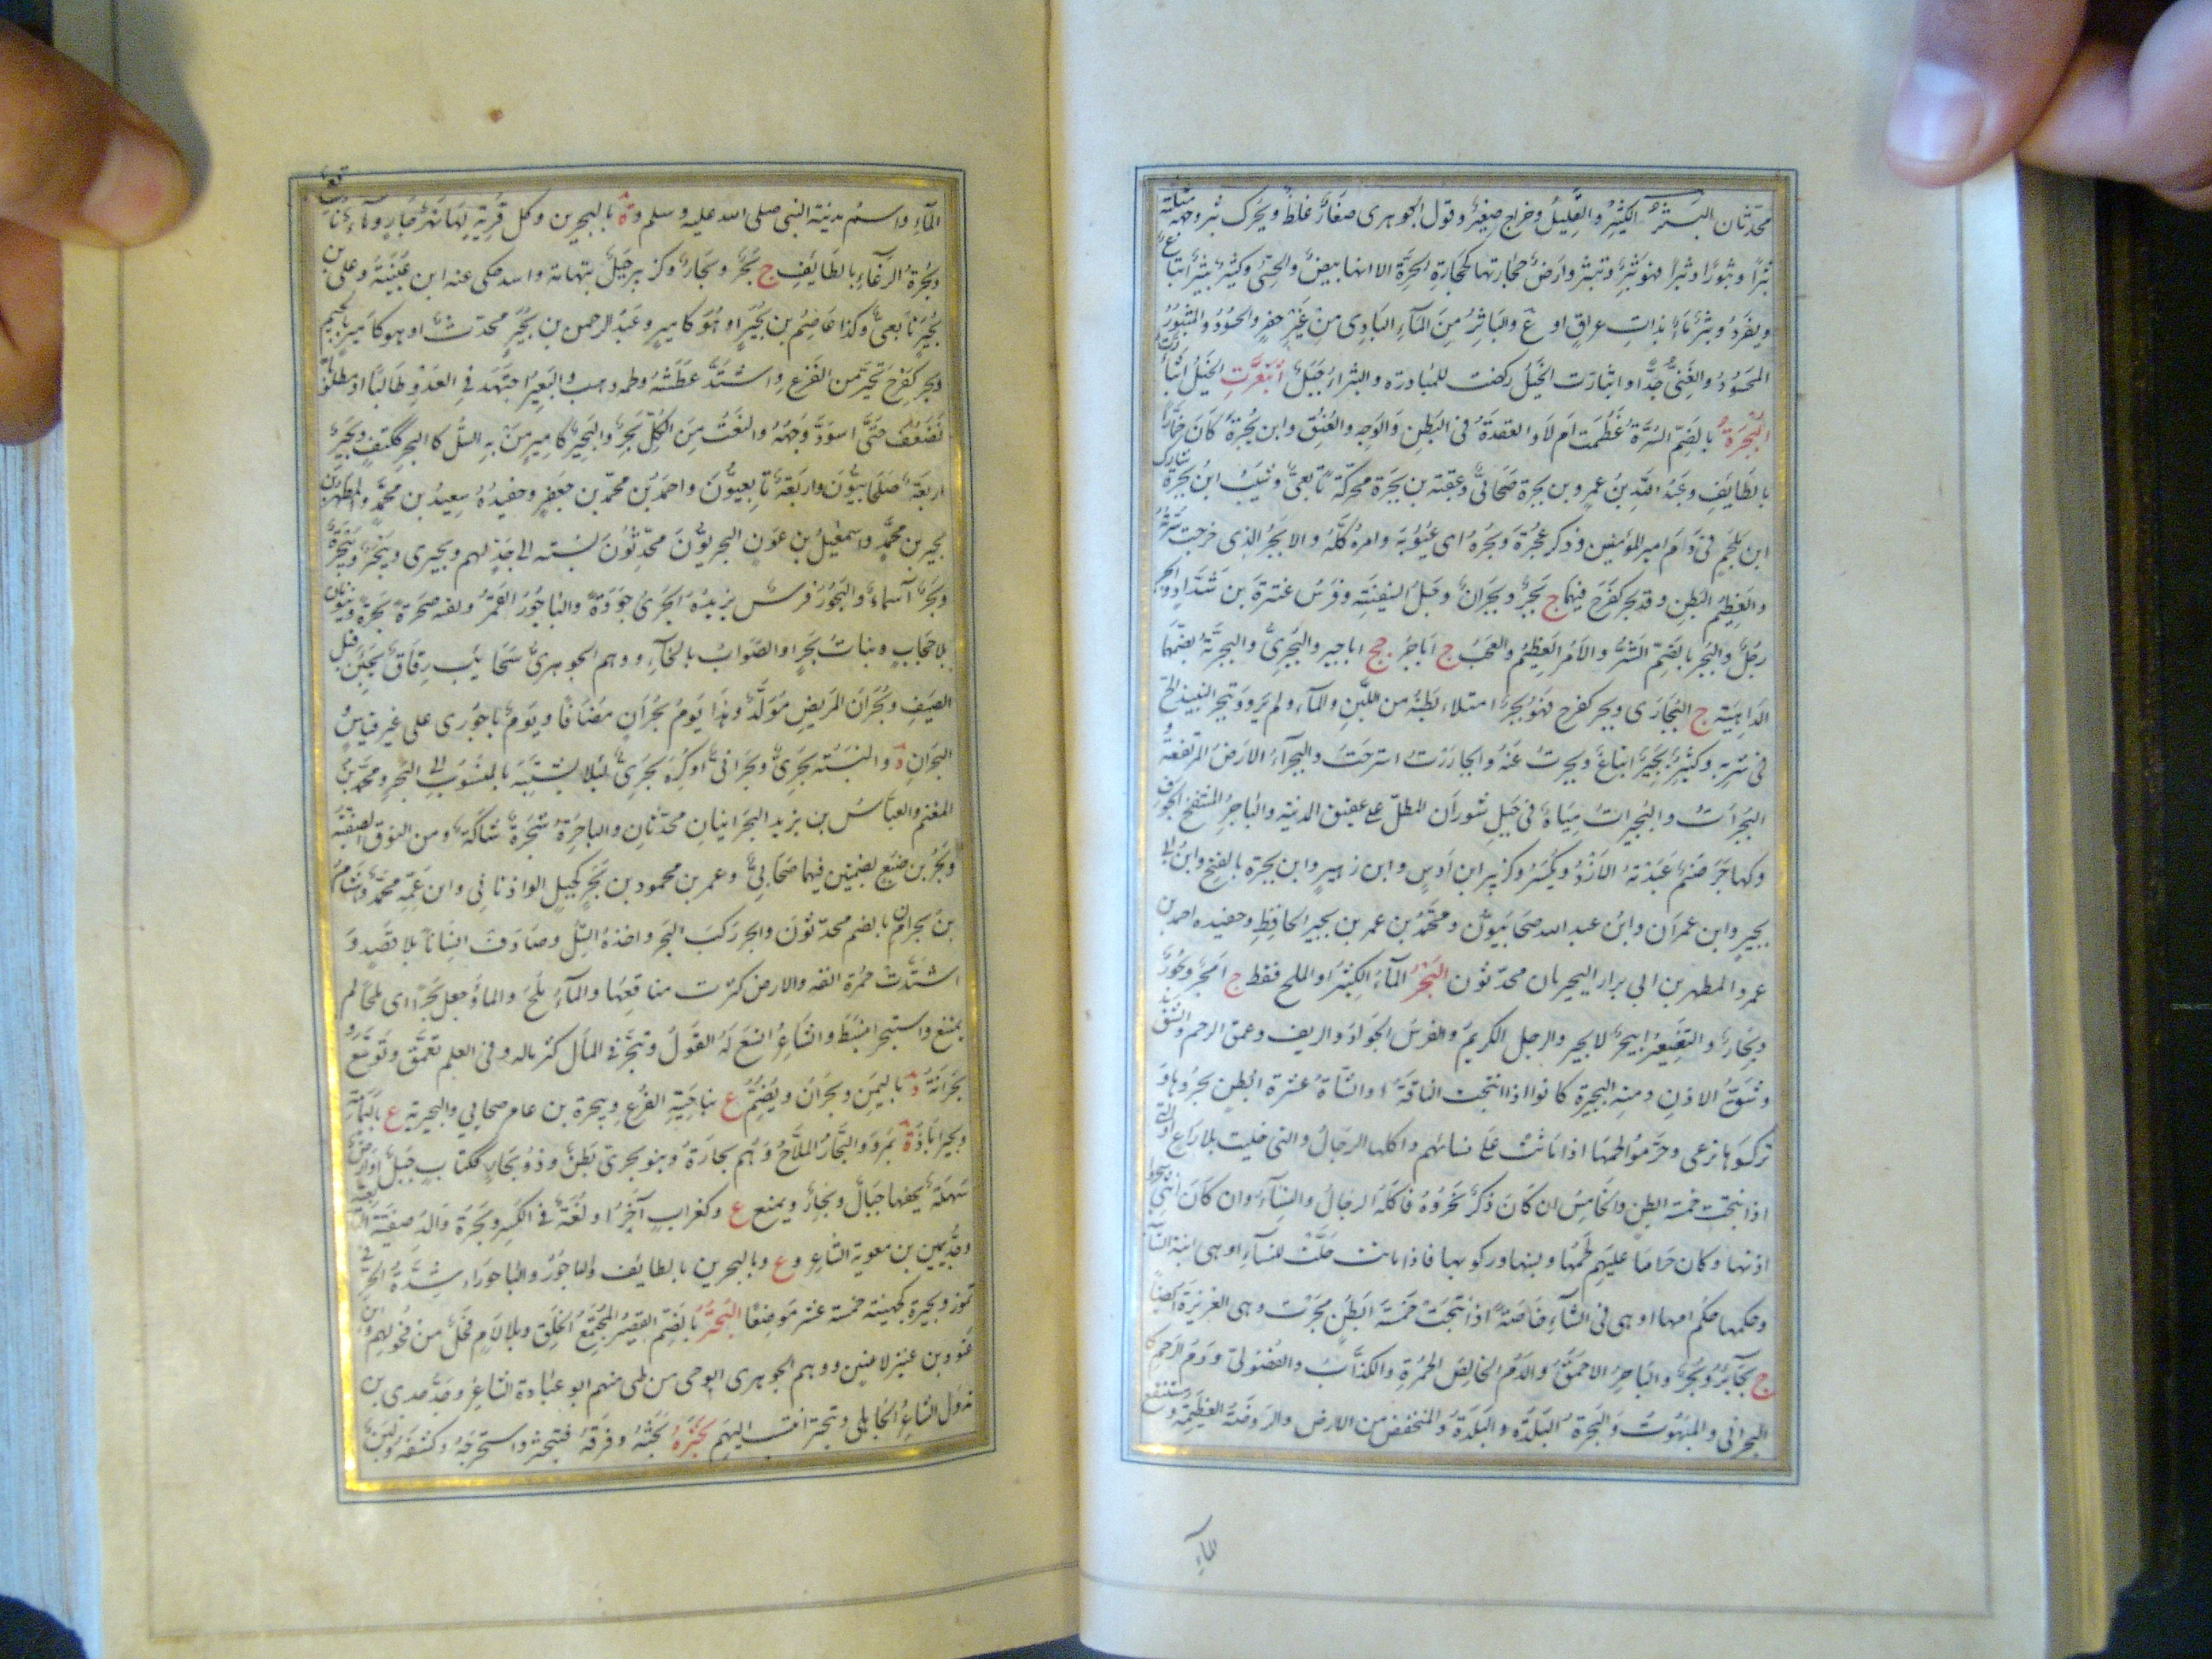 محدثان البثر الكثير والقليل وخراج صغير وقول الجوهري صغار غلط ويحرك بثر وجهه مثلثة
بثرا وبثورا وبثرا فهو بثر وتبثر وارض حجارتها كحجارة الحرة الا انها بيض والحسى وكثير بثير اتباع
ويفرد وبثر ماء بذات عرق او ع والباثر من الماء البادي من غير حفر والحسود والمبثور
المحسود والغني جدا وابثارت الخيل ركضت للمبادرة والبثراء جبل ابثعرت الخيل ابثأرت
البجرة بالضم السرة عظمت ام لا والعقدة في البطن والوجه والعنق وابن بجرة كان خمارا
بالطايف وعبد الله بن عمرو بن بجرة صحابي وعقبة بن بجرة محركة تابعي وشبيب ابن بجرة شارك
ابن ملجم في دم امير المؤمنين وذكر عجره وبجره اي عيوبه وامره كله والابجر الذي خرجت سرته
والعظيم البطن وقد بجر كفرح فيهما ج بجر وبجران وحبل السفينة وفرس عنترة بن شداد و
رجل والبجر بالضم الشر والامر العظيم والعجب ج اباجر جج اباجير والبجري والبجرية بضمهما
الداهية ج البجاري وبجر كفرح فهو بجر امتلاء بطنه من اللبن والماء ولم يرو وتبجر النبيذ الح
في شربه وكثير بجير اتباع وبجرت عنه وابجاررت استرخت والبجراء الارض المرتفعة و
البجرات والبجيرات مياه في جبل شوران المطل على عقيق المدينة والباجر المنتفخ الجوف
وكهاجر صنم عبدته الازد ويكسر وكزبير ابن اوس وابن زهير وابن بجرة بالفتح وابن ابي
بجير وابن عمران وابن عبد الله صحابيون ومحمد بن عمر بن بجير الحافظ وحفيده احمد بن
عمر والمطهر بن ابي نزار البجيريان محدثون البحر الماء الكثير او الملح فقط ج ابحر وبحور
وبحار والتصغير ابيحر لا بحير والرجل الكريم والفرس الجواد والريف وعمق الرحم والشق
وشق الاذن ومنه البحيرة كانوا اذا انتجت الناقة او الشاة عشرة ابطن بحروها و
تركوها ترعى وحرموا لحمها اذا ماتت على نسائهم واكلها الرجال والتي خليت بلا راع او التي
اذا نتجت خمسة ابطن والخامس ان كان ذكر نحروه فاكله الرجال والنساء وان كان انثى بحروا
اذنها وكان حراما عليهم لحمها ولبنها وركوبها فاذا ماتت حلت للنساء او هي ابنة السائبة
وحكمها حكم امها او هي في الشاء خاصة اذا نتجت خمسة ابطن بحرت وهي الغزيرة ايضا
ج بحائر وبحر والباحر الاحمق والدم الخالص الحمرة والكذاب والفضولي ودم الرحم كا
البحراني والمبهوت والبحرة البلدة والبلدة والمنخفض من الارض والروضة العظيمة ومستنقع
الماء
الماء واسم مدينة النبي صلى الله عليه وسلم وة بالبحرين وكل قرية لها نهر جار وماء ناقع
وبحرة الرغاء بالطايف ج بحر وبحار وكزبير جبل بتهامة واسدي حكى عنه ابن عيينة وعلي بن
بحير تابعي وكذا عاصم بن بحير او هو كامير وعبد الرحمن بن بحير محدث او هو كامير بالجيم
وبحر كفرح تحير من الفزع واشتد عطشه ولحمه ذهب والبعير اجتهد في العدو طالبا او مطلوبا
فضعف حتى اسود وجهه والنعت من الكل بحر والبحير كامير من به السل كالبحر ككتف وبحير
اربعة صحابيون واربعة تابعيون واحمد بن محمد بن جعفر وحفيده سعيد بن محمد والمطهر بن
بحير بن محمد واسمعيل بن عون البحريون محدثون نسبة الى جد لهم وبحيرى وبيحر وبيحرة
وبحر اسماء والبحور فرس يزيده الجري جودة والباحور القمر ولقيه صحرة بحرة وينونان
بلا حجاب وبنات بحر او الصواب بالخاء ووهم الجوهري سحايب رقاق يجئن قبل
الصيف وبحران المريض مولد وهذا يوم بحران مضافا ويوم باحوري على غير قياس و
البحران د والنسبة بحري وبحراني او كره بحري لئلا يشتبه بالمنسوب الى البحر ومحمد بن
المعتمر والعباس بن يزيد البحرانيان محدثان والباحرة شجرة شاكة ومن النوق الصفية
وبحر بن ضبع بضمتين فيهما صحابي وعمر بن محمود بن بحر كجبل الواذناني وابن عمه محمد وهشام
بن بحران بالضم محدثون وابحر ركب البحر واخذه السل وصادف انسانا بلا قصد و
اشتدت حمرة انفه والارض كثرت مناقعها والماء ملح والماء جعل بحرا اي ملحا لم
يمنع واستبحر انبسط والشاعر اتسع له القول وتبحر في المال كثر ماله وفي العلم تعمق وتوسع و
بحرانة د باليمن وبحران ويضم ع بناحية الفرع وبيحرة بن عامر صحابي والبحيرية ع باليمامة
وبحيراباذ ة بمرو والبحار الملاح وهم بحارة وبنو بحري بطن وذو بحار ككتاب جبل او ارض
سهلة يحفها جبال وبحار ويمنع ع وكغراب آخر او لغة في الكسر وبحرة والد صفية التابعية
وجد يمين بن معوية الشاعر وع وبالبحرين بالطايف والباحور والباحوراء شدة الحر في
تموز وبحيرة كجهينة خمسة عشر موضعا البحتر بالضم القصير المجتمع الخلق وبلا لام فحل من فحولهم وابن
عتود بن عنيز لا عنين ووهم الجوهري ابو حي من طى منهم ابو عبادة الشاعر وجد جدي بن
تدول الشاعر الجاهلي وتبحتر انتسب اليهم بحثره بحثه وفرقه فتبحثر واستخرجه وكشفه ولبن